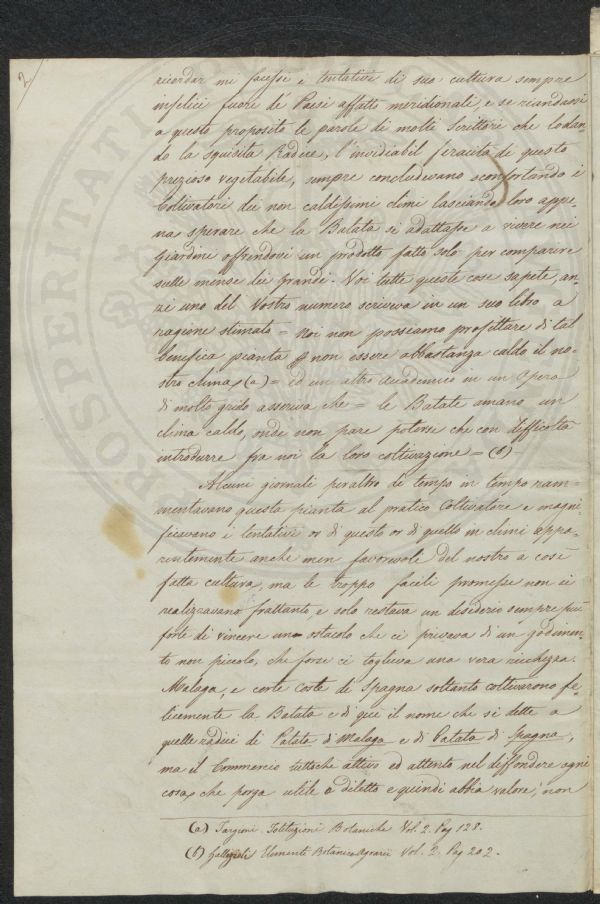 2
ricordar mi facessi i tentativi di sua cultura sempre
infelici fuori de' Paesi affatto meridionali, e se riandassi
a questo proposito le parole di molti Scrittori che lodan-
do la squisita Radice, l'invidiabil feracità di questo
prezioso vegetabile, sempre concludevano sconfortando i
Coltivatori dei non caldissimi climi lasciando loro appe-
na sperare che la Batata si adattasse a vivere nei
Giardini offrendovi un prodotto fatto solo per comparire
sulle mense dei grandi. Voi tutte queste cose sapete, an-
zi uno del Vostro numero scriveva in un suo libro a
ragione stimato = Noi non possiamo profittare di tal
benefica pianta p non essere abbastanza caldo il no-
stro clima, (a) = ed un altro Accademico in un Opera
di molto grido asseriva che = le Batate amano un
clima caldo, onde non pare potersi che con difficoltà
introdurre fra noi la loro coltivazione = (b) -
Alcuni giornali peraltro di tempo in tempo ram-
mentavano questa pianta al pratico Coltivatore e magni-
ficavano i tentativi or di questo or di quello in climi appa-
rentemente anche men favorevoli del nostro a così
fatta cultura, ma le troppo facili promesse non si
realizzavano frattanto, e solo restava un desiderio sempre più
forte di vincere uno ostacolo che ci privava di un godimen-
to non piccolo, che forse ci toglieva una vera ricchezza.
Malaga, e certe Coste di Spagna soltanto coltivarono fe-
licemente la Batata e di qui il nome che si dette a
quelle radici di Patata di Malaga e di Patata di Spagna,
ma il Commercio tuttochè attivo ed attento nel diffondere ogni
cosa, che porga utile o diletto e quindi abbia valore, non
(a) Targioni Istituzioni Botaniche Vol. 2. Pag 128.
(b) Gallizioli Elementi Botanico Agrarii Vol. 2. Pag 202.